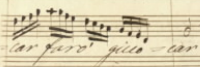 car farò giuo = car